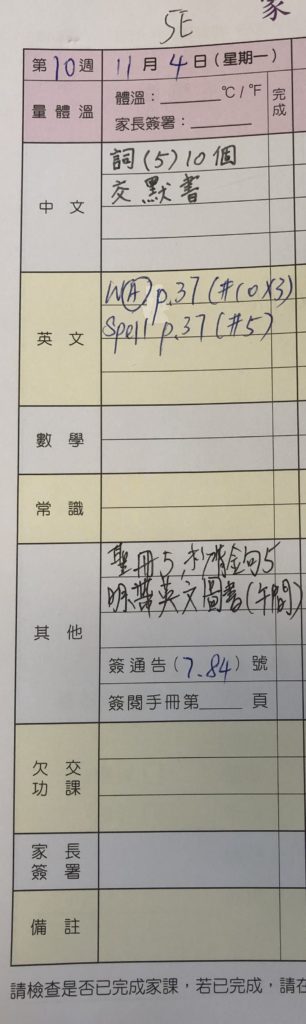 家
5E
第10週 11月4日(星期一)
量體溫 體溫:______℃/°F 完成
家長簽署:______
中文 詞(5)10個
交默書
英文 W(A) p.37 (#10x3)
Spell p.37 (#5)
數學
常識
其他 聖冊5,
金句5
明帶英文圖書(午間)
簽通告(7-84)號
簽閱手冊第____頁
欠交功課
家長簽署
備註
請檢查是否已完成家課,若已完成,請在